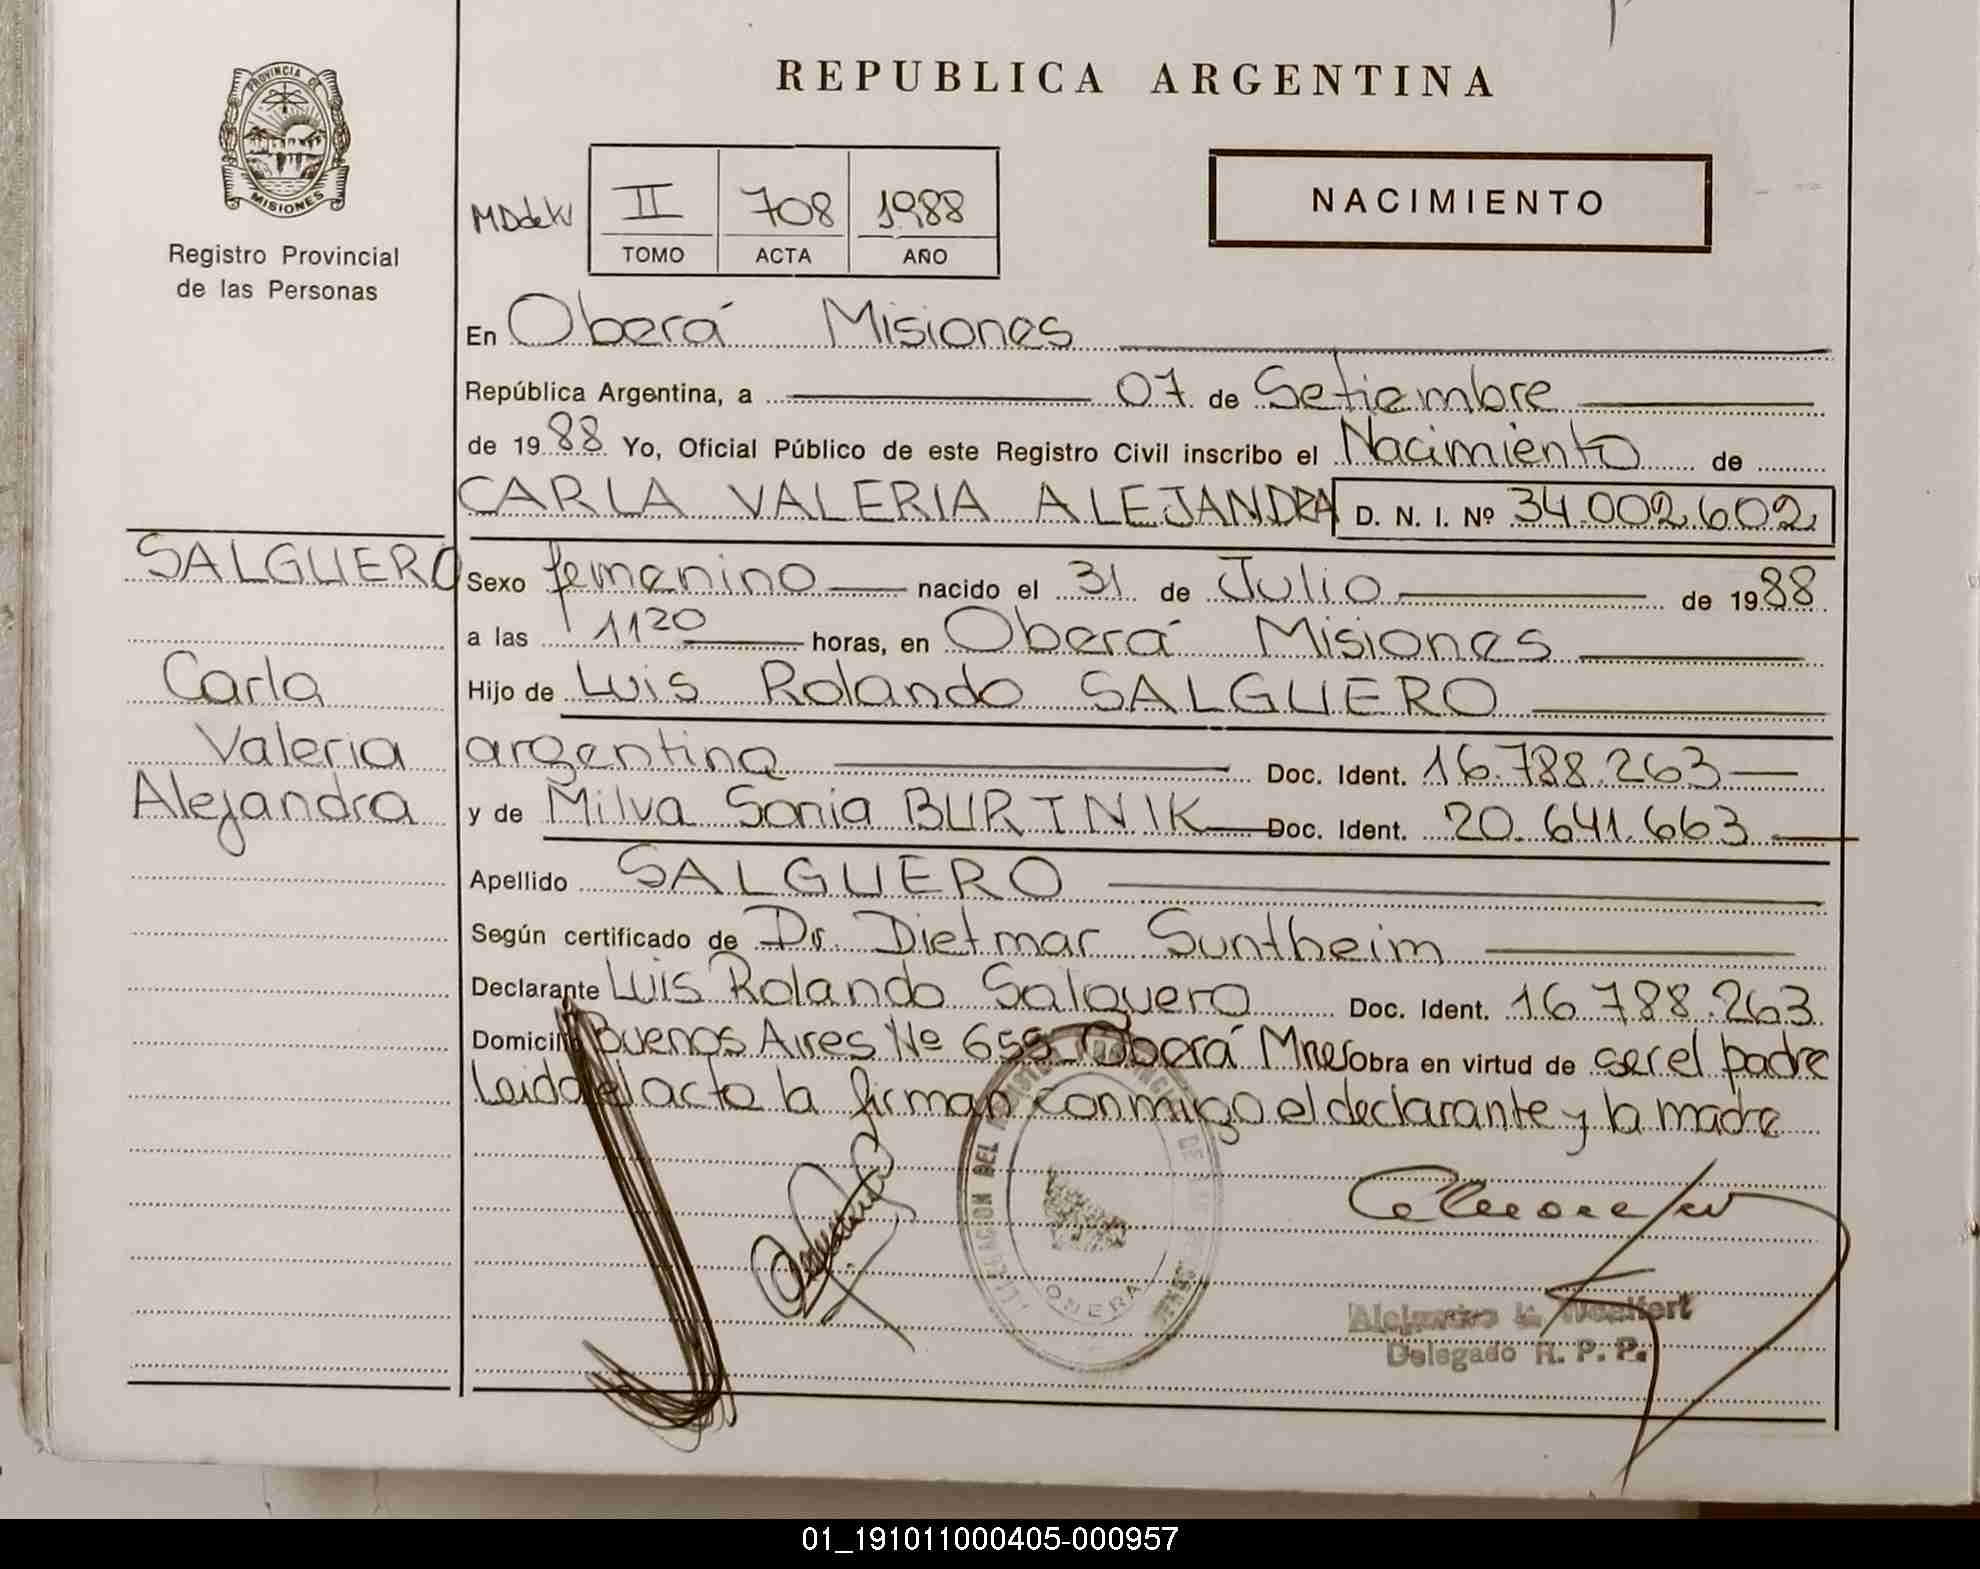 REPUBLICA ARGENTINA
PROVINCIA DE
MISIONES
Registro Provincial
de las Personas
II 708 1988
TOMO ACTA AÑO
NACIMIENTO
En Oberá Misiones
República Argentina, a 07 de Setiembre
de 1988 Yo, Oficial Público de este Registro Civil inscribo el Nacimiento de
CARLA VALERIA ALEJANDRA D. N. I. Nº 34.002.602
SALGUERO
Carla
Valeria
Alejandra
Sexo femenino nacido el 31 de Julio de 1988
a las 1120 horas, en Oberá Misiones
Hijo de Luis Rolando SALGUERO
argentina Doc. Ident. 16.788.263
y de Milva Sonia BURTNIK Doc. Ident. 20.641.663
Apellido SALGUERO
Según certificado de Dr. Dietmar Suntheim
Declarante Luis Rolando Salguero Doc. Ident. 16.788.263
Domicilio Buenos Aires Nº 659 Oberá Mnes Obra en virtud de ser el padre
Leida el acta la firman conmigo el declarante y la madre
OBERA
Delegado R. P. P.
01_191011000405-000957